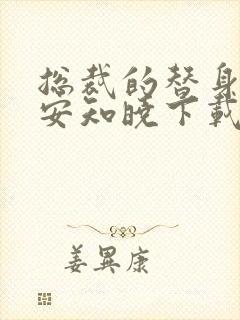 总裁的替身
安知晓下载
姜異康